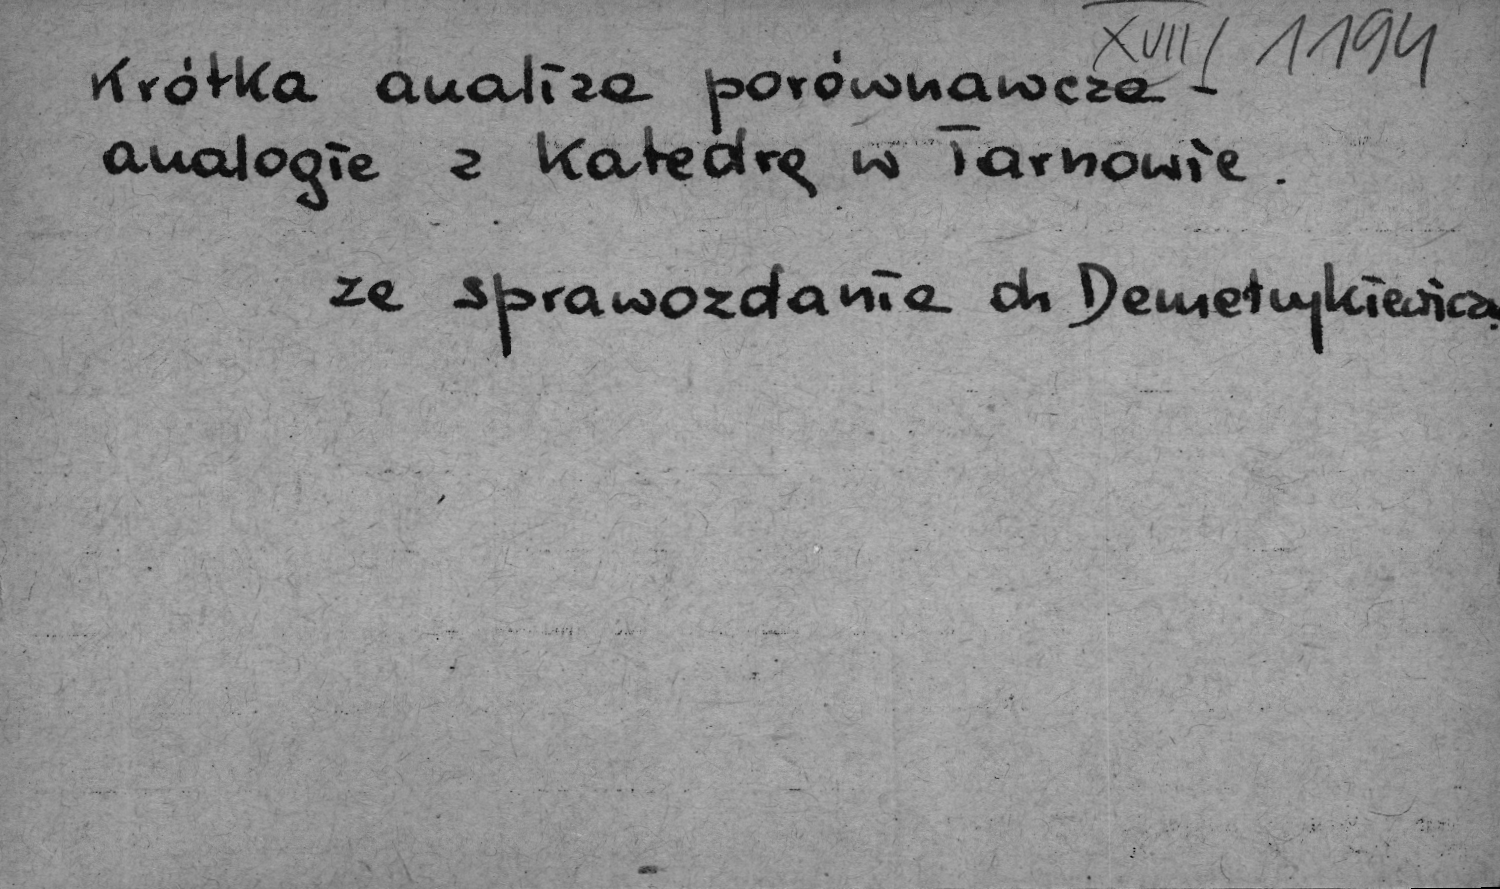 XVIII/1194
Krótka analiza porównawcza -
analogie z Katedrą w Tarnowie.
ze sprawozdania dr Demetrykiewicza